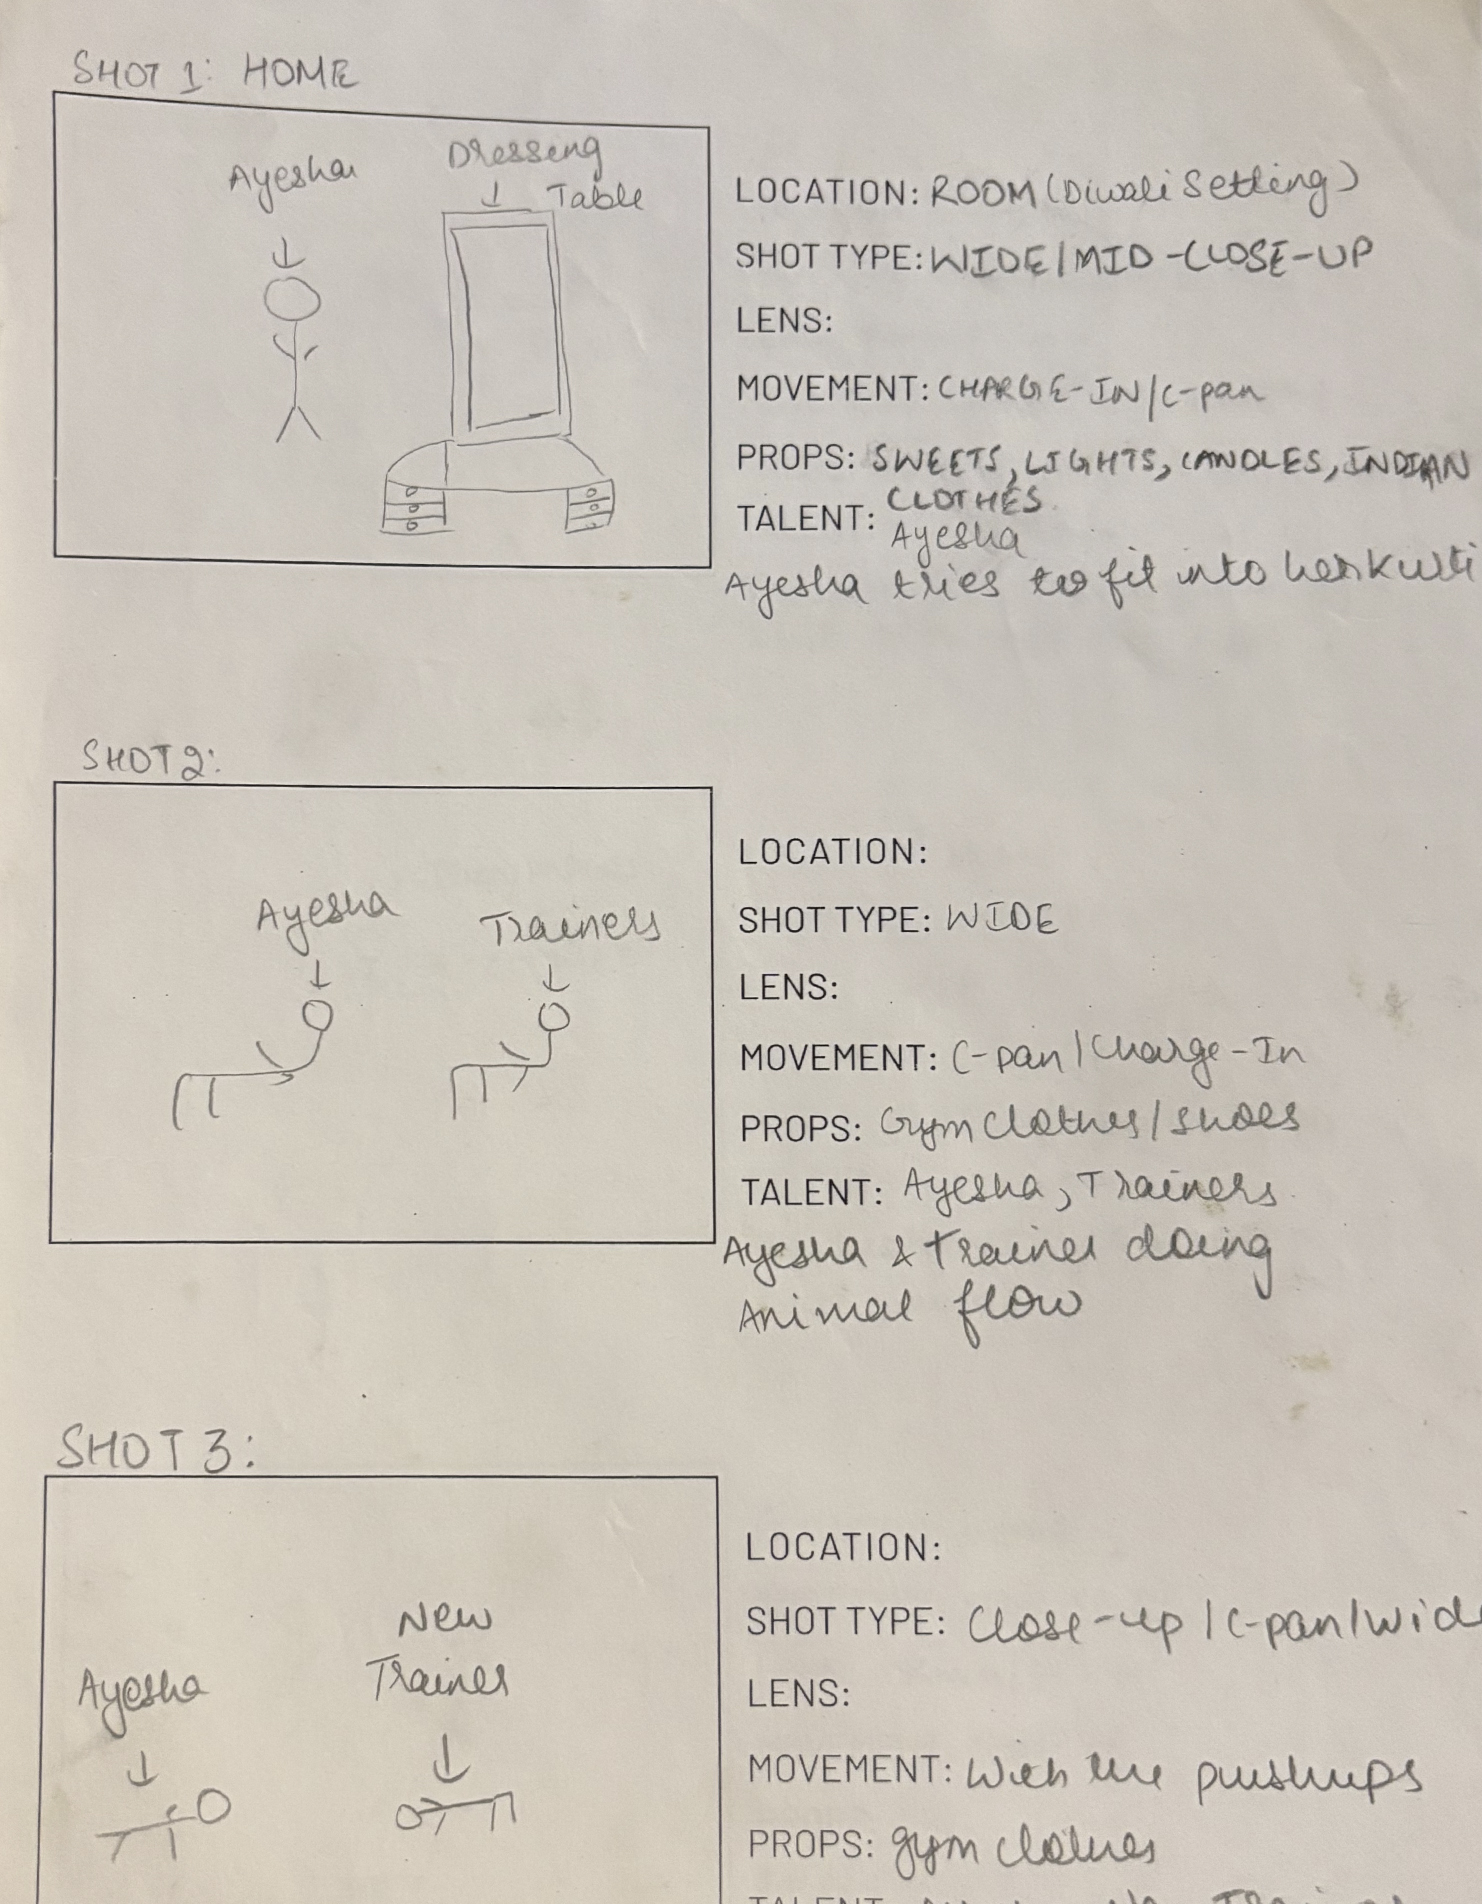 SHOT 1: HOME
Ayesha
Dressing
Table
LOCATION: ROOM (Diwali Setting)
SHOT TYPE: WIDE/MID-CLOSE-UP
LENS:
MOVEMENT: CHARGE-IN/C-pan
PROPS: SWEETS, LIGHTS, CANDLES, INDIAN
CLOTHES.
TALENT: Ayesha
Ayesha tries to fit into her Kurti
SHOT 2:
Ayesha
Trainers
LOCATION:
SHOT TYPE: WIDE
LENS:
MOVEMENT: C-pan/Charge-In
PROPS: Gym Clothes/shoes
TALENT: Ayesha, Trainers
Ayesha & Trainer doing
Animal flow
SHOT 3:
Ayesha
New
Trainer
LOCATION:
SHOT TYPE: Close-up/C-pan/wide
LENS:
MOVEMENT: With the pushups
PROPS: gym clothes
TALENT: